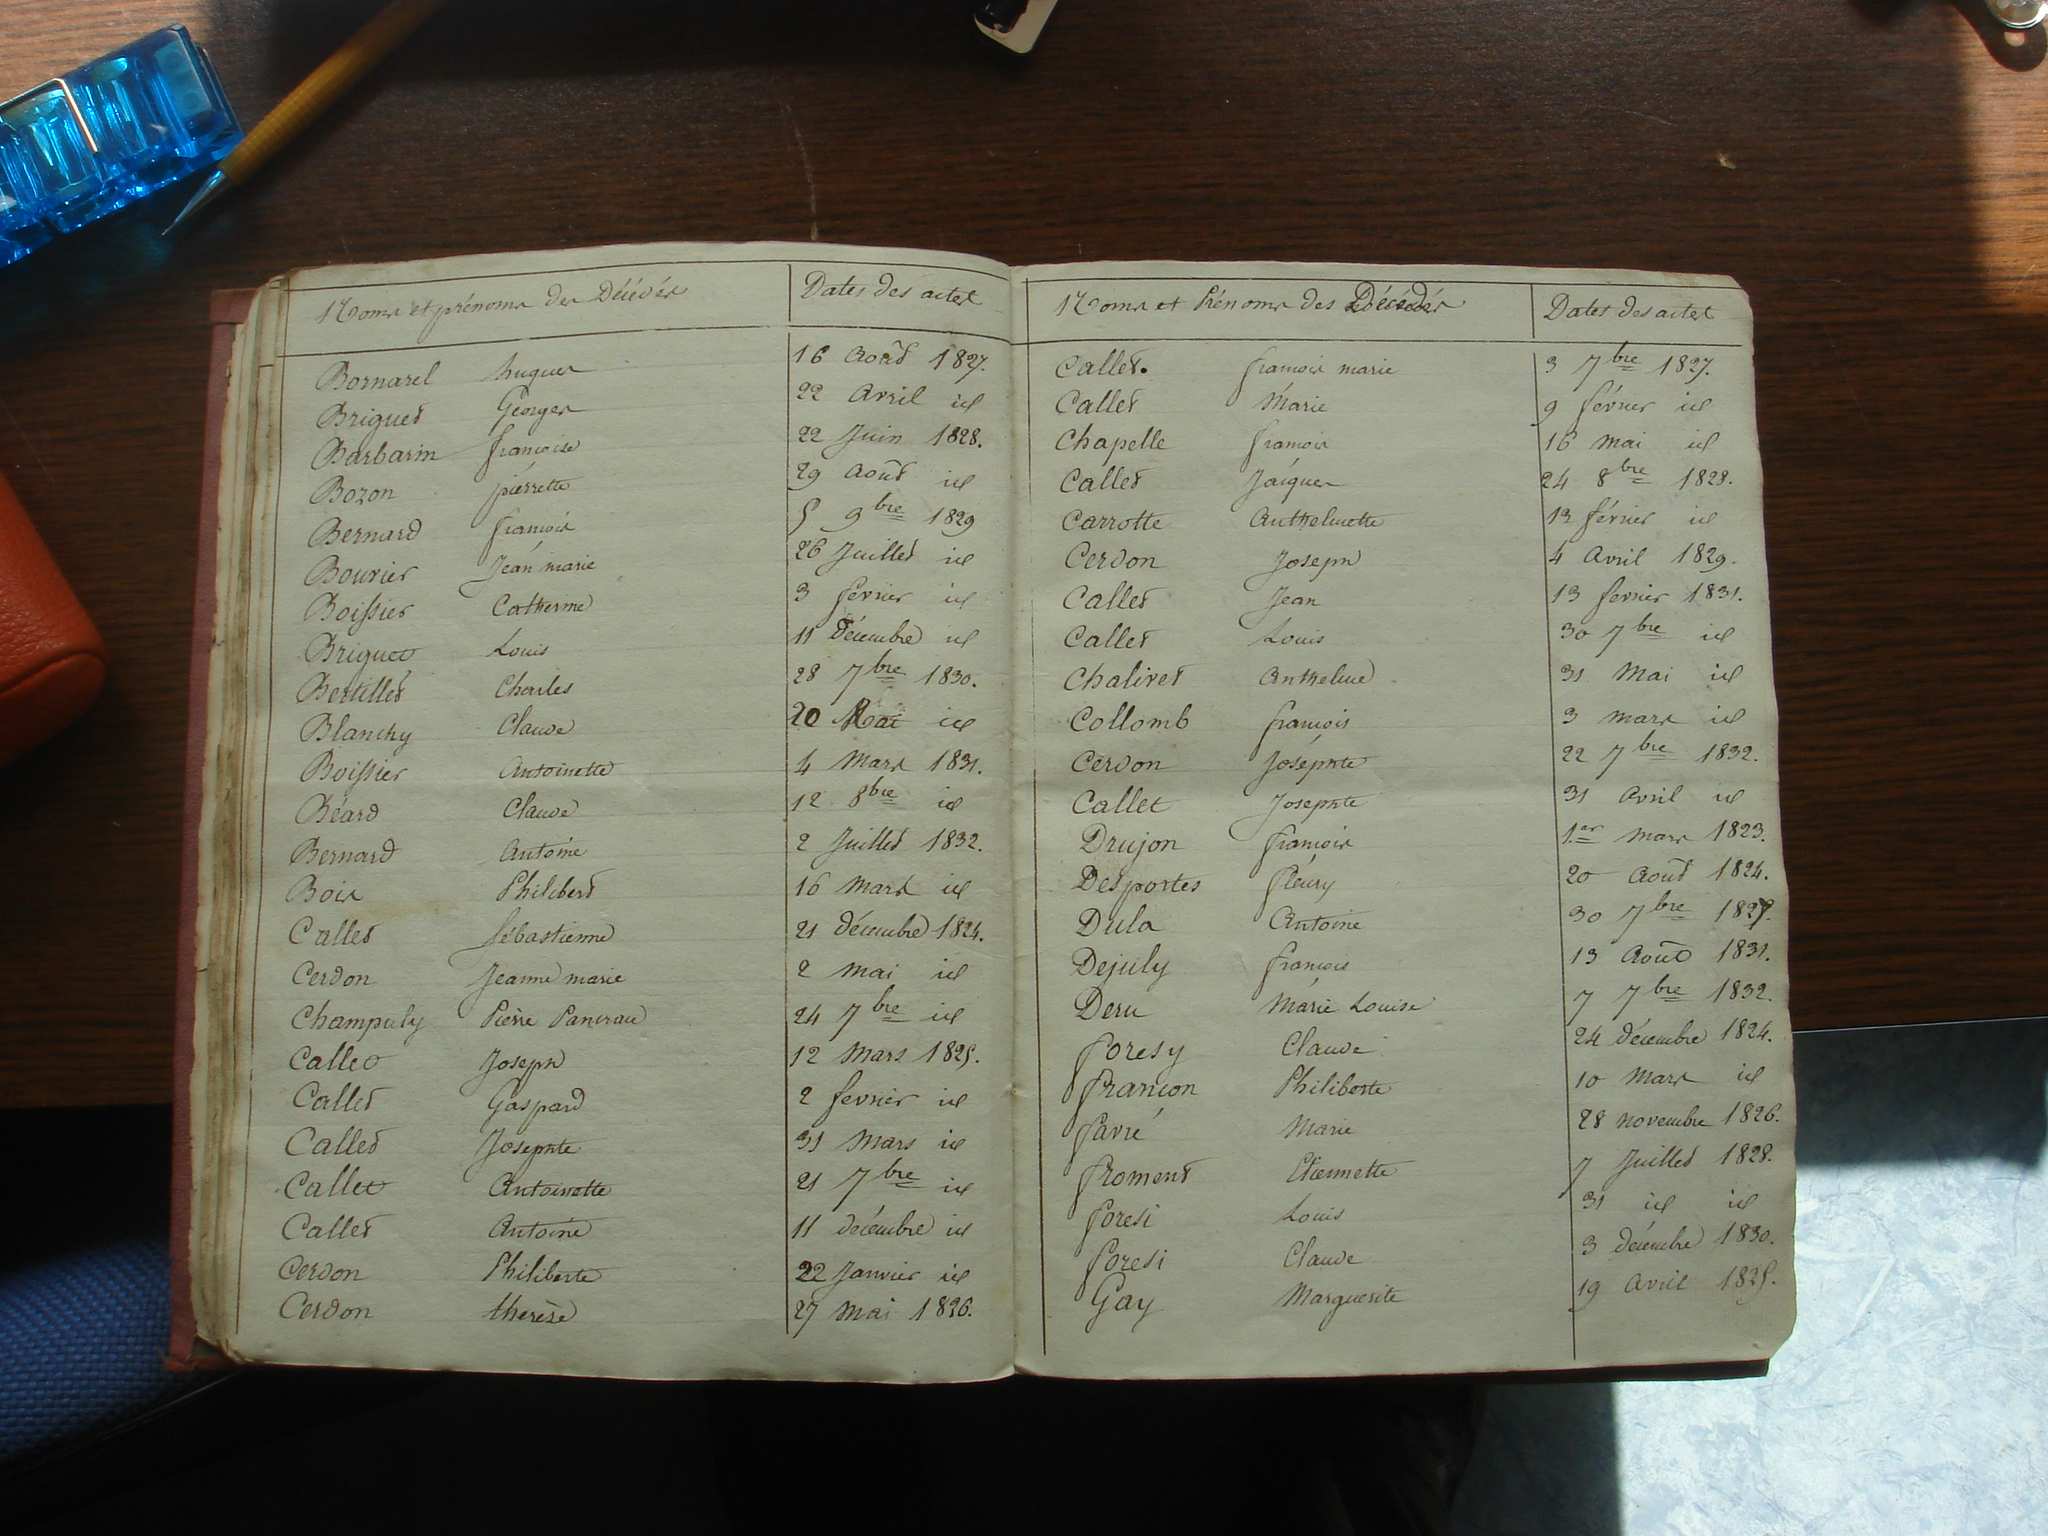 Noms et prénoms des Décédés Dates des actes
Bornarel hugues 16 Août 1827.
Briguet Georges 22 Avril id
Barbarin françoise 22 Juin 1828.
Bozon pierrette 29 Août id
Bernard françois 5 9bre 1829
Bouvier Jean marie 26 Juillet id
Boissier Catherine 3 février id
Briguet Louis 11 Décembre id
Bertillet Charles 28 7bre 1830.
Blanchy Claude 20 Mai id
Boissier Antoinette 4 Mars 1831.
Béard Claude 12 8bre id
Bernard Antoine 2 Juillet 1832.
Bois Philibert 16 Mars id
Callet Sébastienne 21 décembre 1824.
Cerdon Jeanne marie 2 mai id
Champuly Pierre Pancrau 24 7bre id
Callet Joseph 12 Mars 1825.
Callet Gaspard 2 fevrier id
Callet Josephte 31 Mars id
Callet Antoinette 21 7bre id
Callet Antoine 11 décembre id
Cerdon Philiberte 22 Janvier id
Cerdon therèse 27 Mai 1826.
Noms et Prénoms des Décédés Dates des actes
Callet. françois marie 3 7bre 1827.
Callet Marie 9 février id
Chapelle françois 16 mai id
Callet Jacques 24 8bre 1828.
Carrotte Anthelmette 12 février id
Cerdon Joseph 4 Avril 1829.
Callet Jean 13 fevrier 1831.
Callet Louis 30 7bre id
Chalivet Anthelme 31 Mai id
Collomb françois 3 mars id
Cerdon Josephte 22 7bre 1832.
Callet Josephte 31 Avril id
Drujon françois 1er mars 1823.
Desportes fleury 20 Août 1824.
Dula Antoine 30 7bre
Dejuly françois 13 Août 1831.
Deru Marie Louise 7 7bre 1832.
foresy Claude 24 décembre 1824.
françon Philiberte 10 Mars id
favre Marie 28 novembre 1826.
froment Etiennette 7 Juillet 1828.
foresi Louis 31 id id
foresi Claude 3 décembre 1830.
Gay Marguerite 19 Avril 1825.